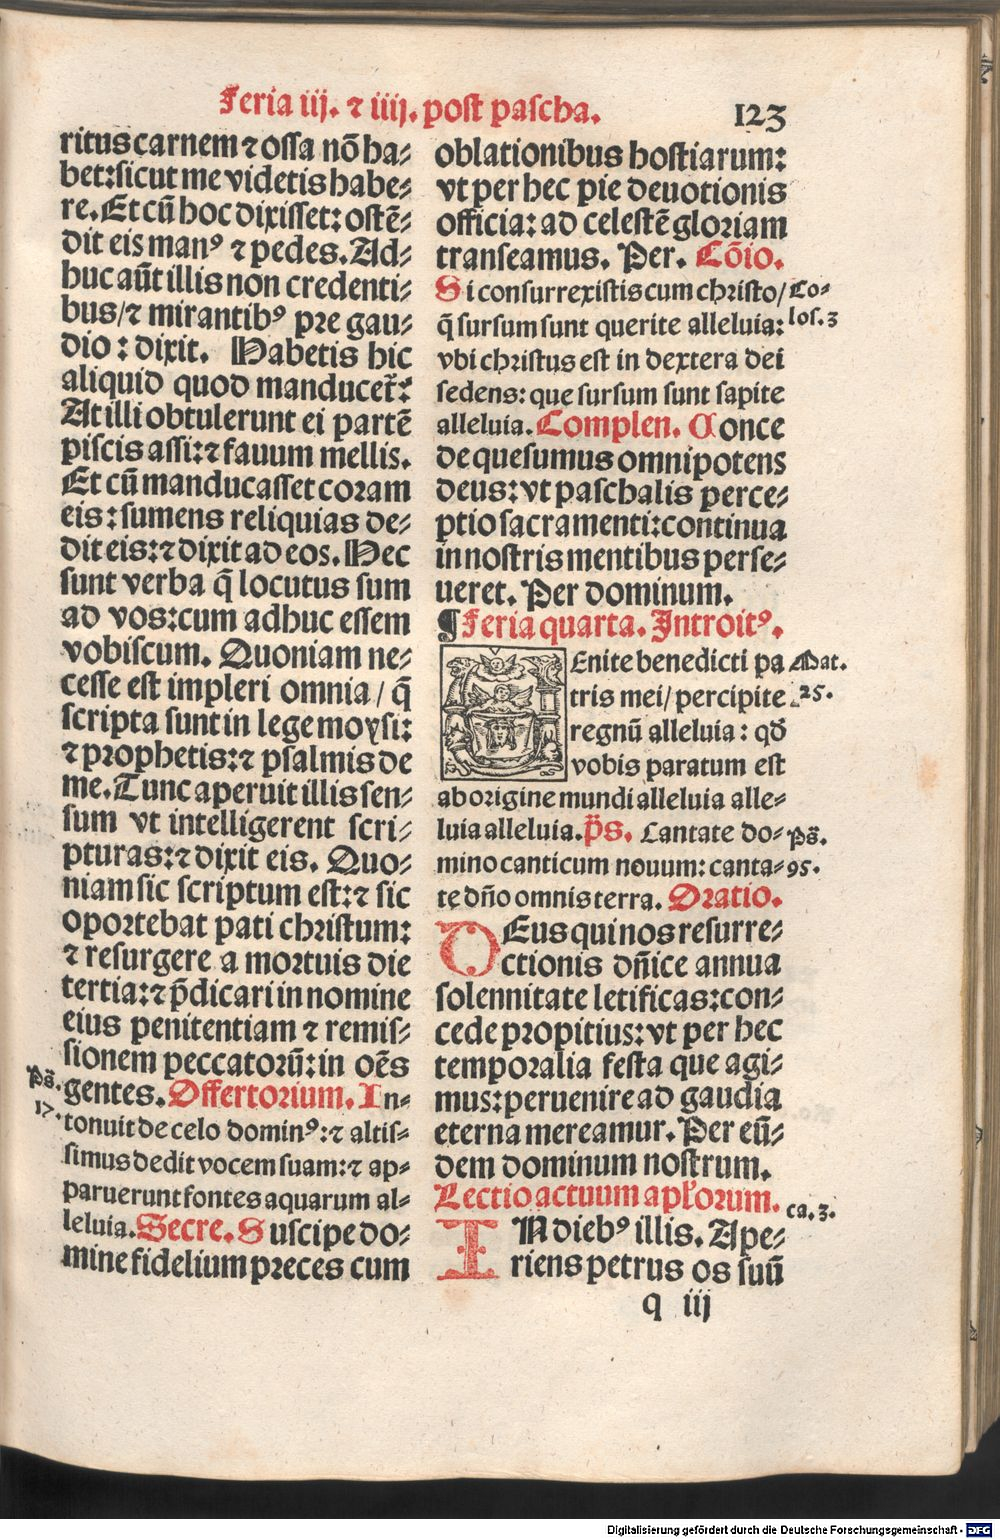 Feria iij. ⁊ iiij. post pascha.
123
ritus carnem ⁊ ossa nõ ha⸗
bet: sicut me videtis habe⸗
re. Et cũ hoc dixisset: ostẽ⸗
dit eis manꝰ ⁊ pedes. Ad⸗
huc aũt illis non credenti⸗
bus/ ⁊ mirantibꝰ pre gau⸗
dio: dixit. Habetis hic
aliquid quod manducet̃:
At illi obtulerunt ei partẽ
piscis assi: ⁊ fauum mellis.
Et cũ manducasset coram
eis: sumens reliquias de⸗
dit eis: ⁊ dixit ad eos. Hec
sunt verba q̃ locutus sum
ad vos: cum adhuc essem
vobiscum. Quoniam ne⸗
cesse est impleri omnia/ q̃
scripta sunt in lege moysi:
⁊ prophetis: ⁊ psalmis de
me. Tunc aperuit illis sen⸗
sum vt intelligerent scri⸗
pturas: ⁊ dixit eis. Quo⸗
niam sic scriptum est: ⁊ sic
oportebat pati christum:
⁊ resurgere a mortuis die
tertia: ⁊ p̃dicari in nomine
eius penitentiam ⁊ remis⸗
sionem peccatorũ: in oẽs
Ps̃. gentes. Offertorium. In⸗
17. tonuit de celo dominꝰ: ⁊ altis⸗
simus dedit vocem suam: ⁊ ap⸗
paruerunt fontes aquarum al⸗
leluia. Secre. Suscipe do⸗
mine fidelium preces cum
oblationibus hostiarum:
vt per hec pie deuotionis
officia: ad celestẽ gloriam
transeamus. Per. Cõio.
Si consurrexistis cum christo/ Co⸗
q̃ sursum sunt querite alleluia: los. 3
vbi christus est in dextera dei
sedens: que sursum sunt sapite
alleluia. Complen. Conce
de quesumus omnipotens
deus: vt paschalis perce⸗
ptio sacramenti: continua
in nostris mentibus perse⸗
ueret. Per dominum.
¶ Feria quarta. Introitꝰ.
Enite benedicti pa Mat.
tris mei/ percipite 25.
regnũ alleluia: qđ
vobis paratum est
ab origine mundi alleluia alle⸗
luia alleluia. p̃s. Cantate do⸗ Ps̃.
mino canticum nouum: canta⸗ 95.
te dño omnis terra. Oratio.
DEus qui nos resurre⸗
ctionis dñice annua
solennitate letificas: con⸗
cede propitius: vt per hec
temporalia festa que agi⸗
mus: peruenire ad gaudia
eterna mereamur. Per eũ⸗
dem dominum nostrum.
Lectio actuum apłorum. ca. 3.
IN diebꝰ illis. Ape⸗
riens petrus os suũ
q iij
Digitalisierung gefördert durch die Deutsche Forschungsgemeinschaft - DFG